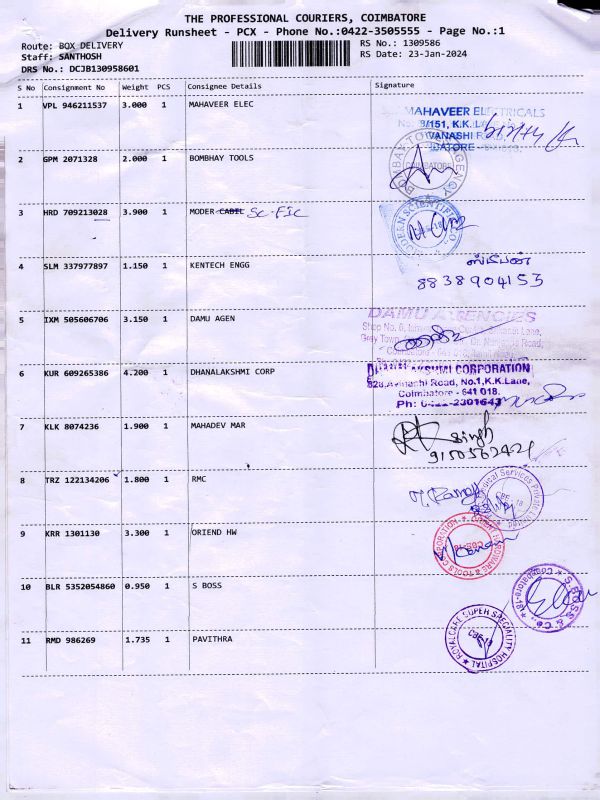 THE PROFESSIONAL COURIERS, COIMBATORE
Delivery Runsheet - PCX - Phone No.:0422-3505555 - Page No.:1
Route: BOX DELIVERY RS No.: 1309586
Staff: SANTHOSH RS Date: 23-Jan-2024
DRS No.: DCJB130958601
S No Consignment No Weight PCS Consignee Details Signature
1 VPL 946211537 3.000 1 MAHAVEER ELEC
MAHAVEER ELECTRICALS
2 GPM 2071328 2.000 1 BOMBHAY TOOLS
3 HRD 709213028 3.900 1 MODER CABIL SC-FIC
4 SLM 337977897 1.150 1 KENTECH ENGG
ஸ்டீபன்
8838904153
5 IXM 505606706 3.150 1 DAMU AGEN
DAMU AGENCIES
6 KUR 609265386 4.200 1 DHANALAKSHMI CORP
CORPORATION
Avinashi Road, No.1,K.K.Lane,
Coimbatore - 641 018.
Ph: 0422-2301643
7 KLK 8074236 1.900 1 MAHADEV MAR
RK Singh
8 TRZ 122134206 1.800 1 RMC
9 KRR 1301130 3.300 1 ORIEND HW
10 BLR 5352054860 0.950 1 S BOSS
S. BOSS & Co. Coimbatore-18
11 RMD 986269 1.735 1 PAVITHRA
ROYALCARE SUPER SPECIALITY HOSPITAL
CBE-18